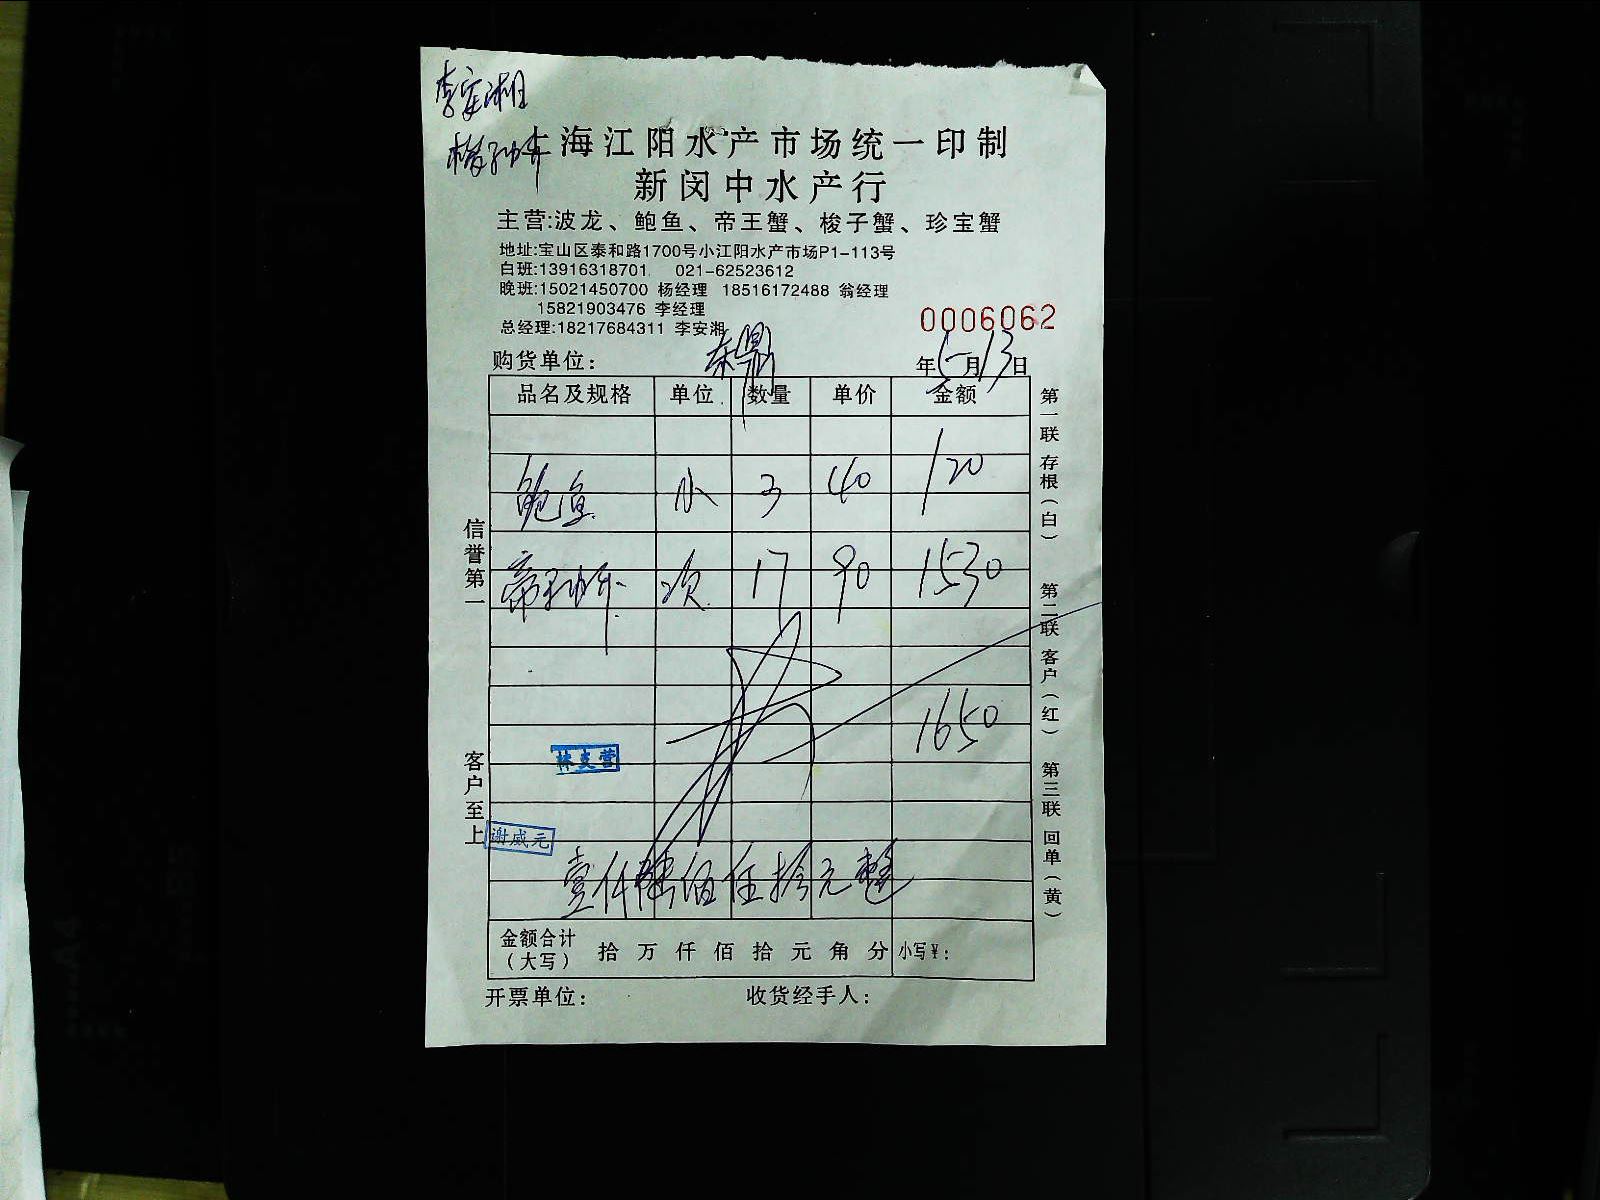 李安湘
上海江阳水产市场统一印制
新闵中水产行
主营:波龙、鲍鱼、帝王蟹、梭子蟹、珍宝蟹
地址:宝山区泰和路1700号小江阳水产市场P1-113号
白班:13916318701 021-62523612
晚班:15021450700 杨经理 18516172488 翁经理
15821903476 李经理
总经理:18217684311 李安湘
0006062
购货单位: 年5月13日
品名及规格 单位 数量 单价 金额
鲍鱼 小 3 40 120
17 90 1530
1650
林支营
谢咸元
壹仟陆佰伍拾元整
金额合计(大写) 拾 万 仟 佰 拾 元 角 分 小写¥:
开票单位: 收货经手人:
信誉第一 客户至上
第一联 存根(白) 第二联 客户(红) 第三联 回单(黄)